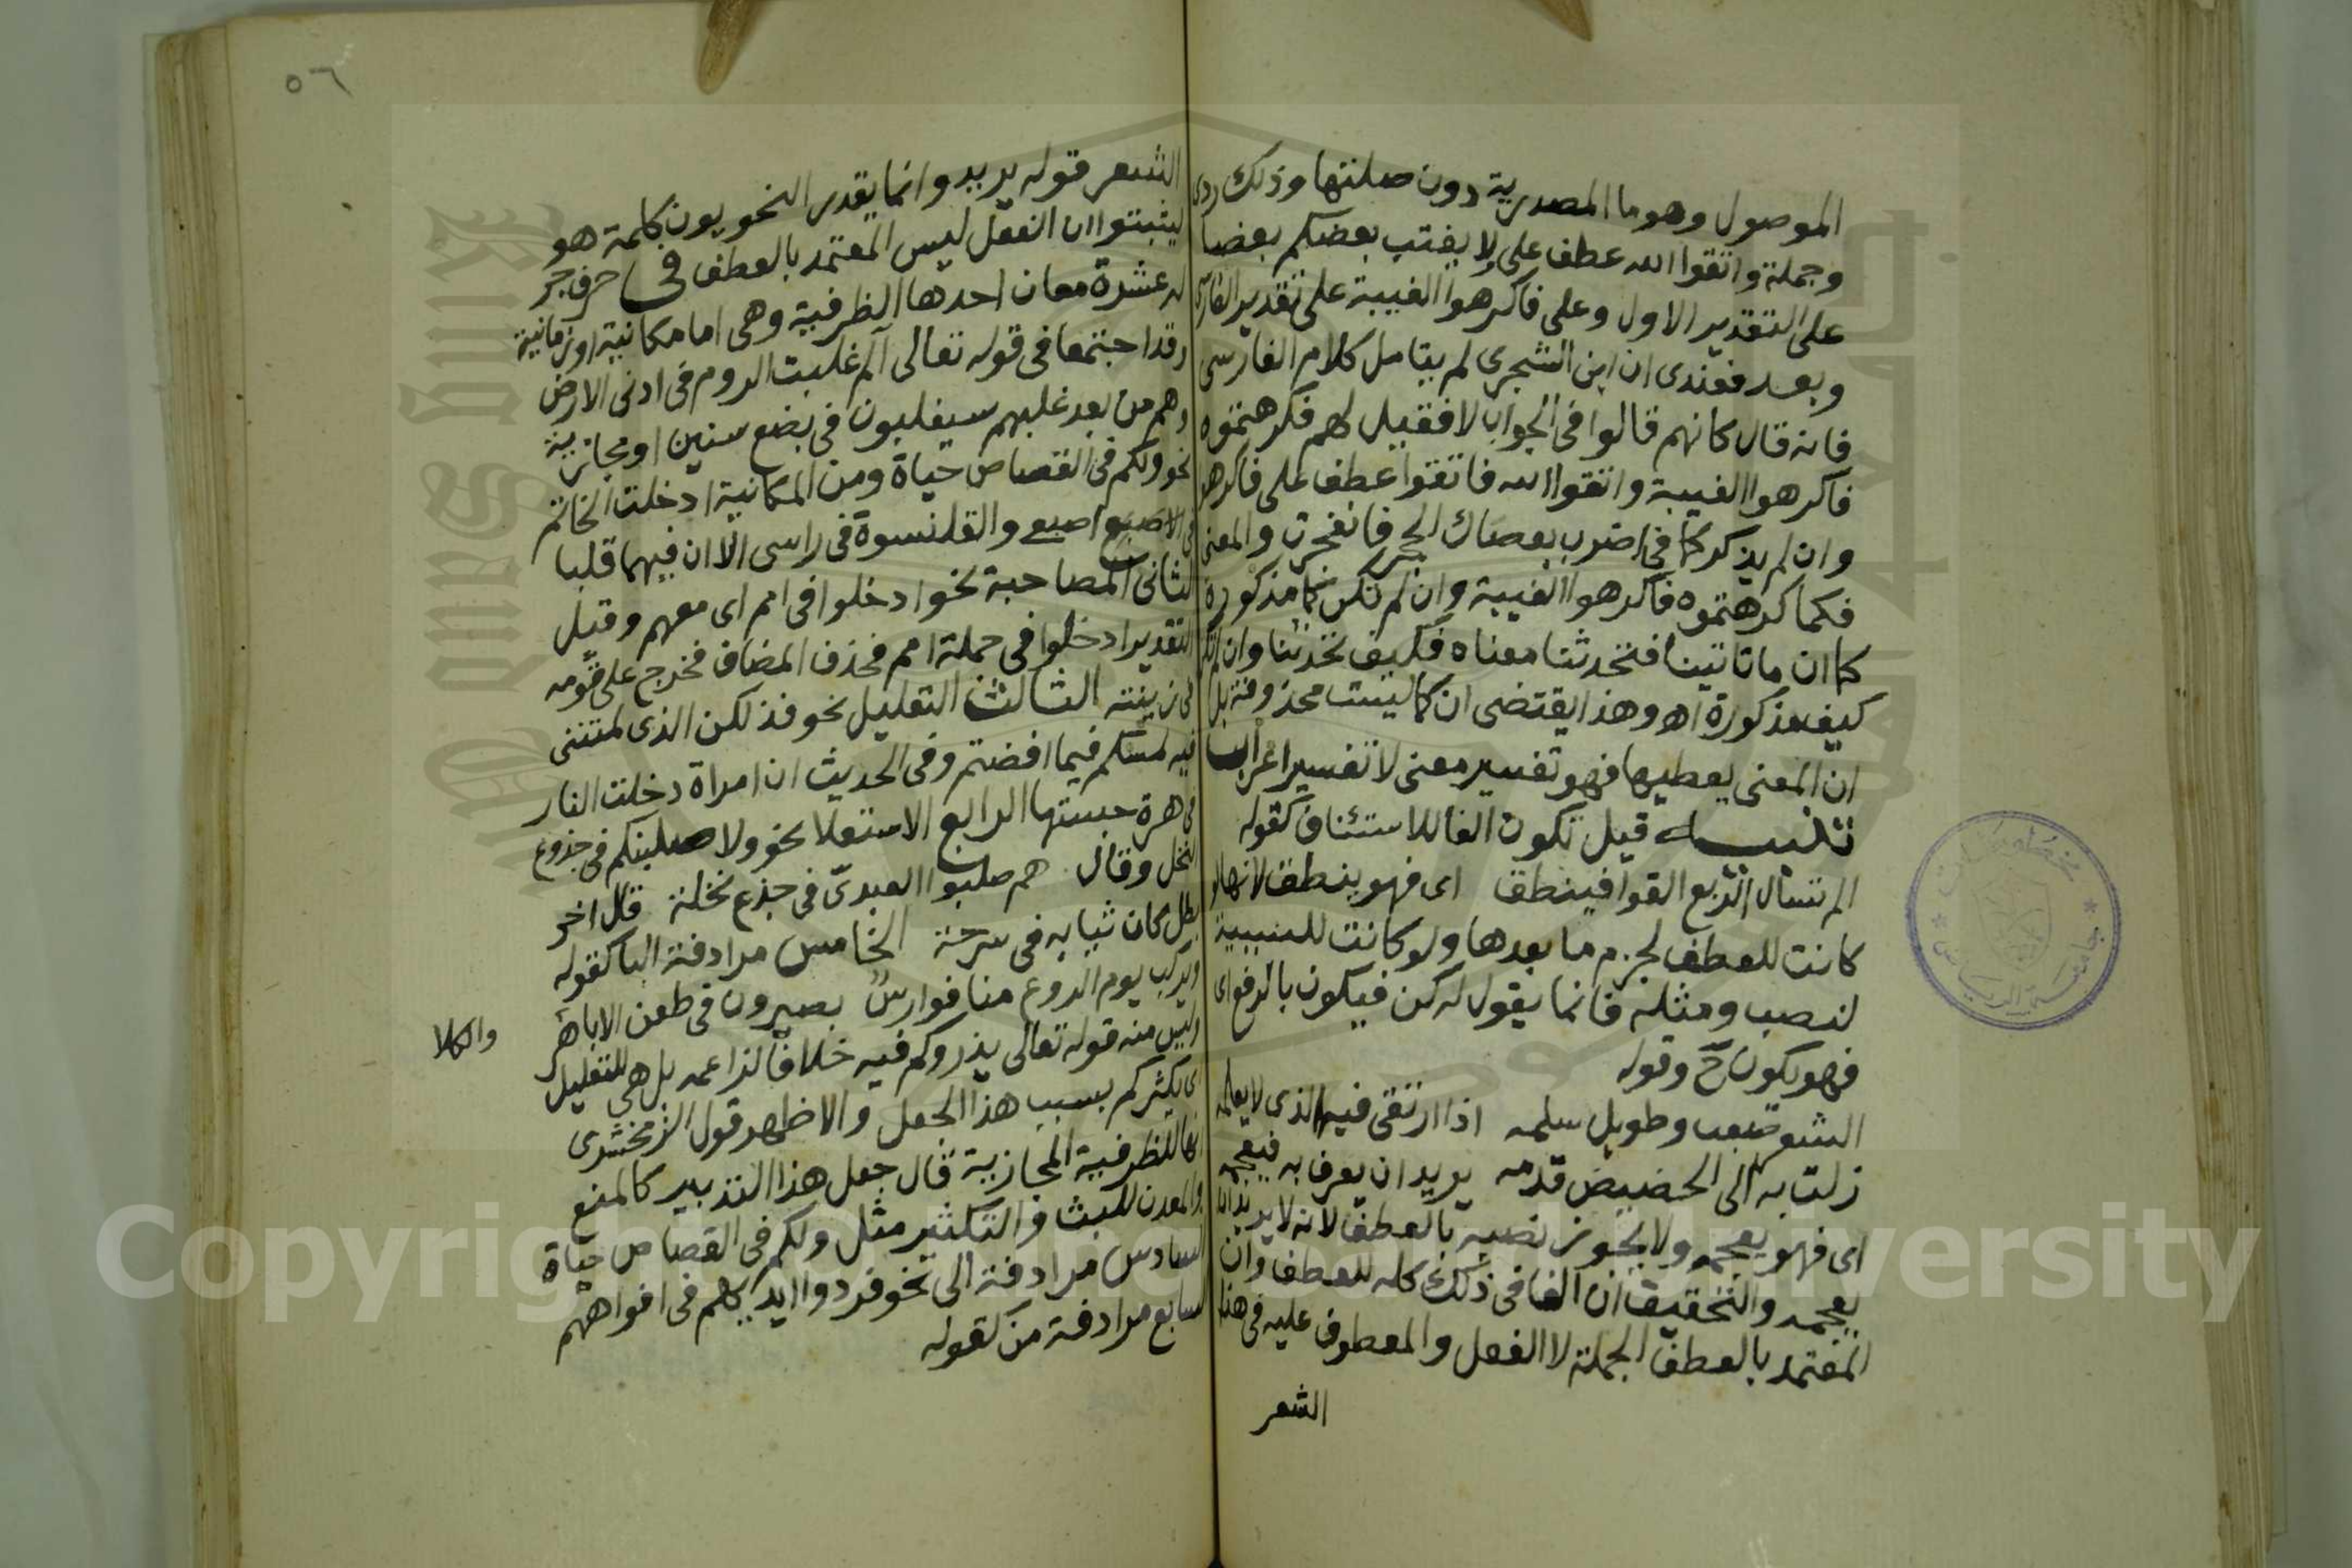 الموصول وهو ما المصدرية دون صلتها وذلك ردى
وجملة واتقوا الله عطف على ولا يغتب بعضكم بعضا
على التقدير الاول وعلى فاكرهوا الغيبة على تقدير الفارسى
وبعد فعندى ان ابن الشجرى لم يتامل كلام الفارسى
فانه قال كانهم قالوا فى الجواب لا فقيل لهم فكرهتموه
فاكرهوا الغيبة واتقوا الله فاتقوا عطف على فاكرهوا
وان لم يذكر كما فى اضرب بعصاك الحجر فانفجرت والمعنى
فكما كرهتموه فاكرهوا الغيبة وان لم تكن كما مذكورة
كما ان ما تاتينا فتحدثنا معناه فكيف تحدثنا وان لم تكن
كيف مذكورة اه وهذا يقتضى ان كما ليست محذوفة بل
ان المعنى يعطيها فهو تفسير معنى لا تفسير اعراب
تنبيه قيل تكون الفا للاستئناف كقوله
الم تسال الربع القوا فينطق اى فهو ينطق لانها لو
كانت للعطف لجزم ما بعدها ولو كانت للسببية
لنصب ومثله فانما يقول له كن فيكون بالرفع اى
فهو يكون ح وقوله
الشعر صعب وطويل سلمه اذا ارتقى فيه الذى لا يعلمه
زلت به الى الحضيض قدمه يريد ان يعرف به فيعجمه
اى فهو يعجمه ولا يجوز نصبه بالعطف لانه لا يريد ان
يعجمه والتحقيق ان الفا فى ذلك كله للعطف وان
المعتمد بالعطف الجملة لا الفعل والمعطوف عليه فى هذا
الشعر
٥٦
الشعر قوله يريد وانما يقدر النحويون كلمة هو
ليثبتوا ان الفعل ليس المعتمد بالعطف فى حرف جر
له عشرة معان احدها الظرفية وهى اما مكانية او زمانية
وقد اجتمعا فى قوله تعالى الم غلبت الروم فى ادنى الارض
وهم من بعد غلبهم سيغلبون فى بضع سنين او مجازية
نحو ولكم فى القصاص حياة ومن المكانية ادخلت الخاتم
فى الاصبع اصبعى والقلنسوة فى راسى الا ان فيهما قلبا
الثانى المصاحبة نحو ادخلوا فى امم اى معهم وقيل
التقدير ادخلوا فى جملة امم فحذف المضاف فخرج على قومه
فى زينته الثالث التعليل نحو فذلكن الذى لمتننى
فيه لمسكم فيما افضتم وفى الحديث ان امراة دخلت النار
فى هرة حبستها الرابع الاستعلا نحو ولا صلبنكم فى جذوع
النخل وقال هم صلبوا العبدى فى جذع نخلة قال اخر
بطل كان ثيابه فى سرحة الخامس مرادفة البا كقوله
ويركب يوم الروع منا فوارس بصيرون فى طعن الاباهر
والكلا
وليس منه قوله تعالى يذروكم فيه خلافا لزاعمه بل هي للتعليل
اى يكثركم بسبب هذا الجعل والاظهر قول الزمخشرى
انها للظرفية المجازية قال جعل هذا التدبير كالمنبع
والمعدن للبث والتكثير مثل ولكم فى القصاص حياة
السادس مرادفة الى نحو فردوا ايديهم فى افواههم
السابع مرادفة من كقوله